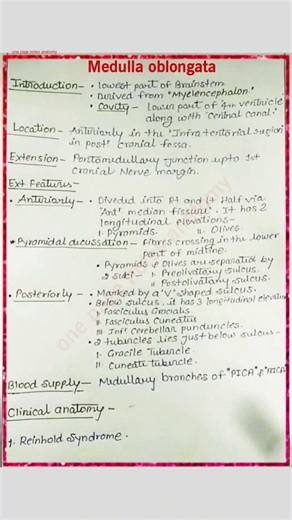 one page notes anatomy
Medulla oblongata
Introduction - • Lowest part of Brainstem
• Derived from "Myelencephalon."
• Cavity - Lower part of 4th ventricle
along with "Central canal."
Location - Anteriorly in the "Infratentorial region"
in post' cranial fossa.
Extension - Pontomedullary junction upto 1st
Cranial Nerve margin.
Ext Features -
• Anteriorly - Divided into Rt and Lt Half via
"Ant' median fissure". It has 2
longitudinal elevations -
i. Pyramids. ii. Olives.
* Pyramidal decussation - Fibres crossing in the lower
part of midline.
• Pyramids & Olives are separated by
2 sulci - i. Preolivatary sulcus.
ii Postolivatary sulcus.
• Posteriorly - • Marked by a "V" shaped sulcus.
• Below sulcus, it has 3 longitudinal elevatio
i Fasciculus Gracialis
ii Fasciculus Cuneatus
iii Inf' cerebellar punduncles.
• 2 tubercles lies just below sulcus -
i. Gracile Tubercle
ii. Cuneate tubercle.
Blood supply - Medullary branches of "PICA" & "AICA"
Clinical anatomy -
1. Reinhold Syndrome.
one p my